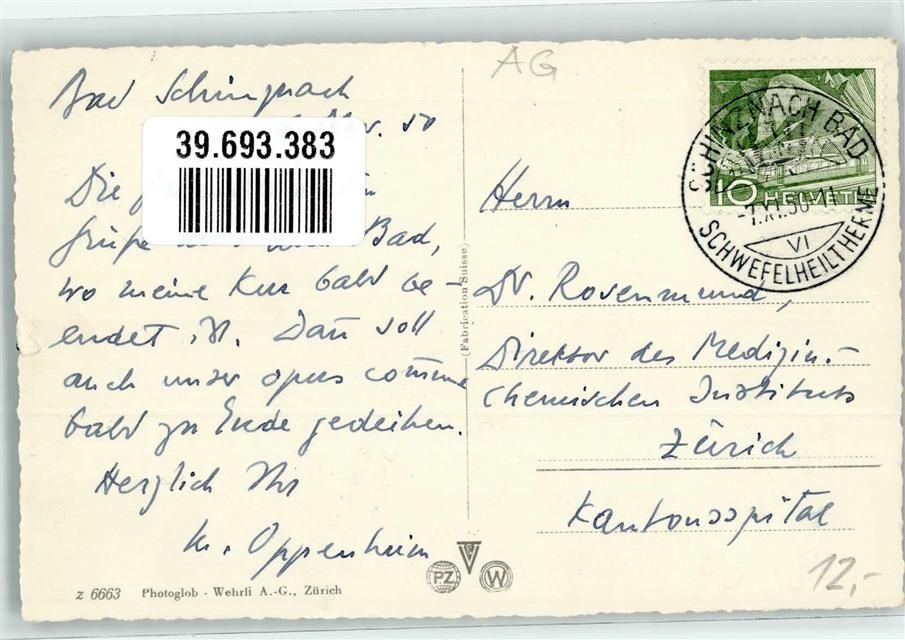 Bad Schinznach
Nov. 50
39.693.383
Die
Grüße Bad,
wo meine Kur bald be-
endet ist. Dañ soll
auch unser opus com̃une
bald zu Ende gedeihen.
Herzlich Ihr
M. Oppenheim
z 6663 Photoglob - Wehrli A.-G., Zürich
(Fabrication Suisse)
PZ
W
AG
10 HELVETIA
SCHINZNACH BAD
-7.XI.50-11
VI
SCHWEFELHEILTHERME
Herrn
Dr. Rosenmund,
Direktor des Medizin.-
chemischen Instituts
Zürich
Kantonsspital
12,-